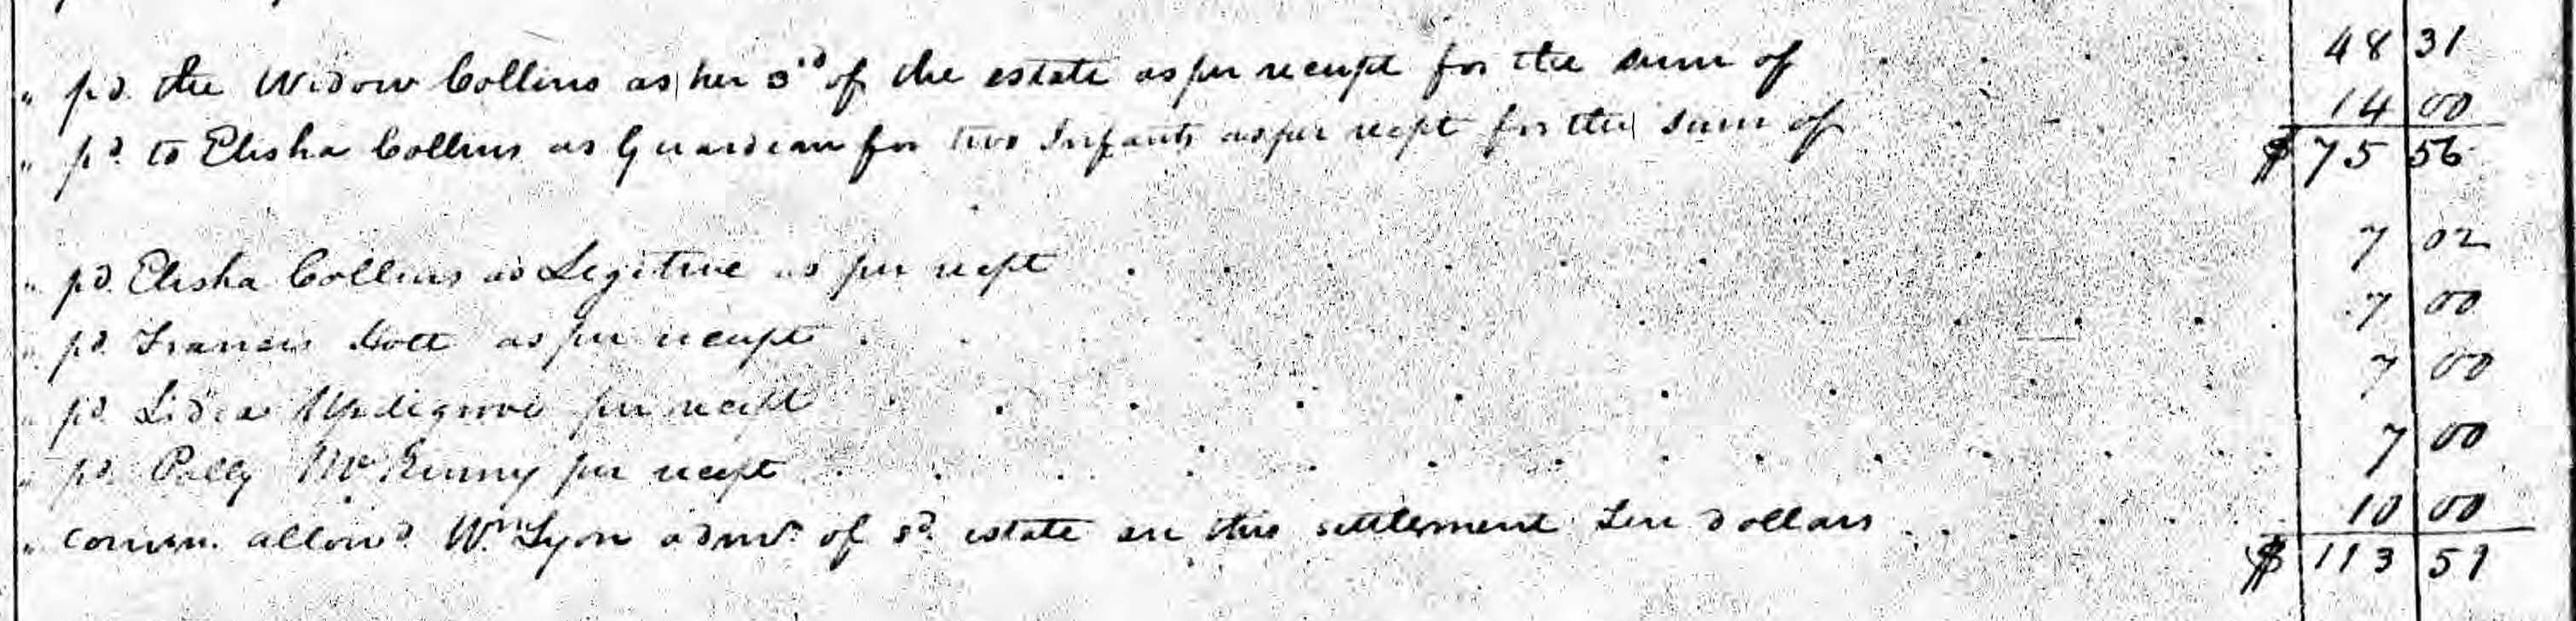 " pd. the Widow Collins as her 3rd of the estate as per receipt for the sum of 48 31
" pd. to Elisha Collins as Guardian for two Infants as per recpt for the sum of 14 00
$ 75 56
" pd. Elisha Collins as Legitive as per recpt 7 02
" pd. Francis Holt as per receipt 7 00
" pd. Lidea Updegrove per recipt 7 00
" pd. Polly McKinny per recept 7 00
" Comm. allowd. Wm Lyon admr. of sd. estate on this settlement Ten dollars 10 00
$ 113 59